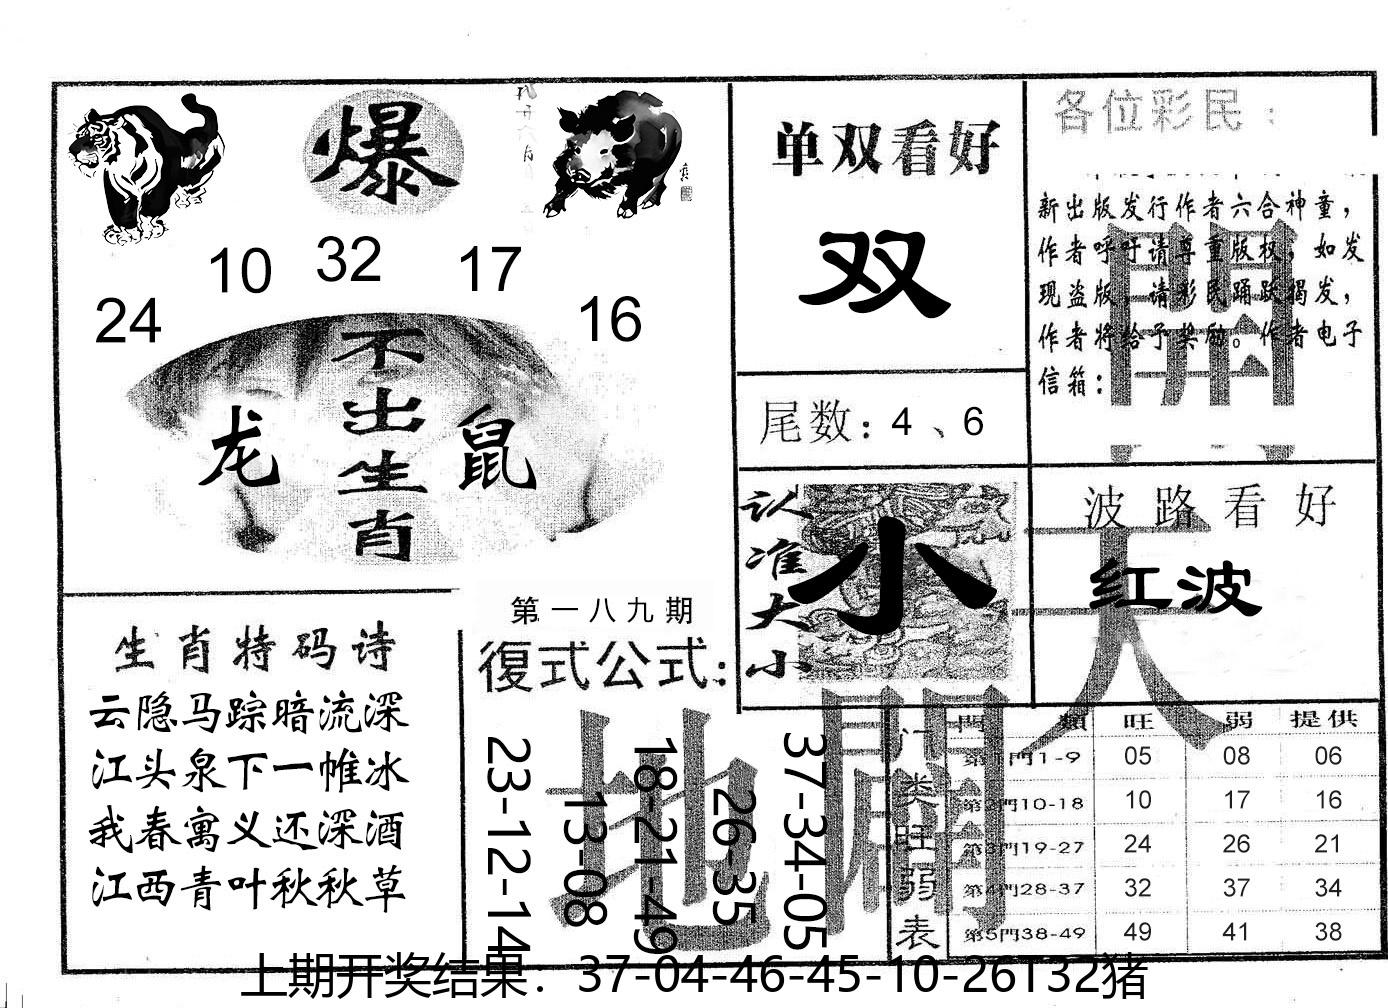 爆
10
32
17
24
16
不出生肖
龙
鼠
单双看好
双
尾数：4、6
各位彩民：
新出版发行作者六合神童，
作者呼吁请尊重版权，如发
现盗版，请彩民踊跃揭发，
作者将给予奖励。作者电子
信箱：
認准大小
小
波路看好
红波
生肖特码诗
云隐马踪暗流深
江头泉下一帷冰
我春寓义还深酒
江西青叶秋秋草
第一八九期
復式公式：
23-12-14
13-08
18-21-49
26-35
37-34-05
天
地
門類 旺 弱 提供
门类旺弱表
第1門1-9 05 08 06
第2門10-18 10 17 16
第3門19-27 24 26 21
第4門28-37 32 37 34
第5門38-49 49 41 38
上期开奖结果：37-04-46-45-10-26T32猪